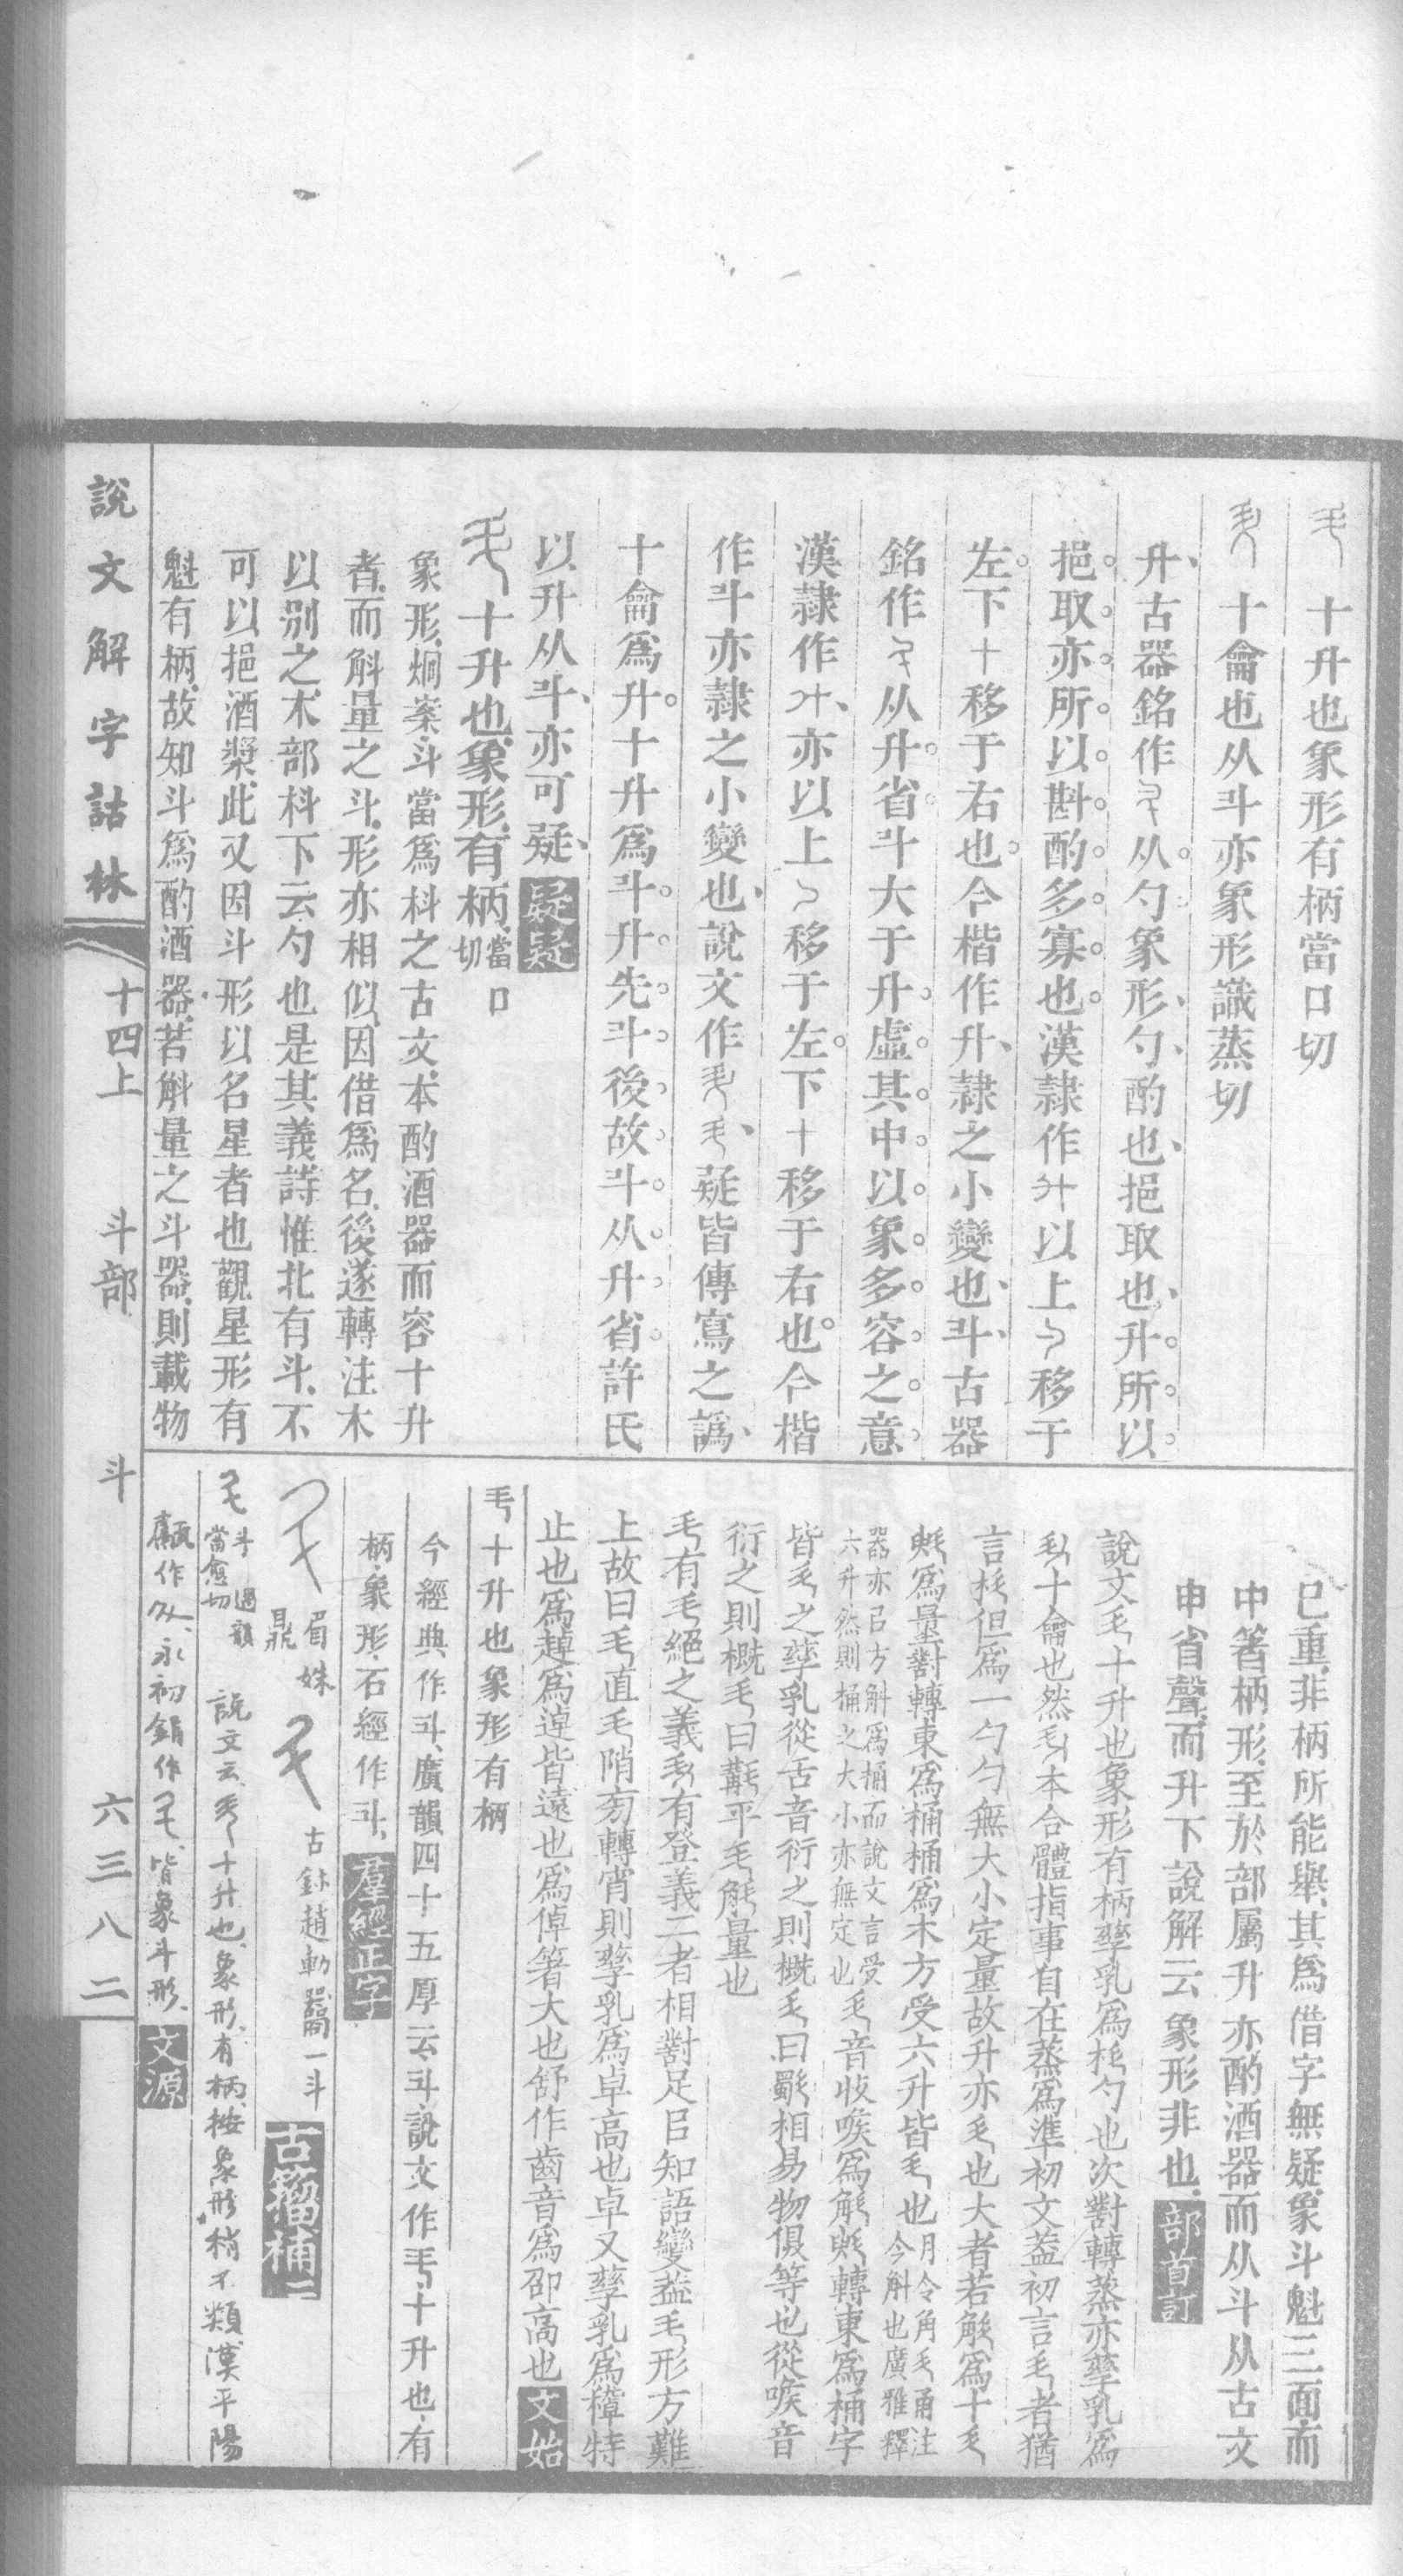 十升也象形有柄當口切
十龠也从斗亦象形識蒸切
升古器銘作从勺象形勺酌也挹取也升所以
挹取亦所以斟酌多寡也漢隸作以上移于
左下十移于右也今楷作升隸之小變也斗古器
銘作从升省斗大于升虛其中以象多容之意
漢隸作亦以上移于左下十移于右也今楷
作斗亦隸之小變也說文作疑皆傳寫之譌
十龠爲升十升爲斗升先斗後故斗从升省許氏
以升从斗亦可疑 疑疑
十升也象形有柄當口切
象形烱案斗當爲枓之古文本酌酒器而容十升
者而斛量之斗形亦相似因借爲名後遂轉注木
以别之木部枓下云勺也是其義詩惟北有斗不
可以挹酒漿此又因斗形以名星者也觀星形有
魁有柄故知斗爲酌酒器若斛量之斗器則載物
已重非柄所能舉其爲借字無疑象斗魁三面而
中箸柄形至於部屬升亦酌酒器而从斗从古文
申省聲而升下說解云象形非也 部首訂
說文十升也象形有柄孳乳爲枓勺也次對轉蒸亦孳乳爲
十龠也然本合體指事自在蒸爲準初文蓋初言者猶
言枓但爲一勺勺無大小定量故升亦也大者若斛爲十
爲量對轉東爲桶桶爲木方受六升皆也月令角甬注今斛也廣雅釋
器亦㠯方斛爲桶而說文言受六升然則桶之大小亦無定也音收喉爲斛轉東爲桶字
皆之孳乳從舌音衍之則概曰相易物俱等也從喉音
衍之則概曰平斛量也
有絕之義有登義二者相對足㠯知語變蓋形方難
上故曰直陗旁轉宵則孳乳爲卓高也卓又孳乳爲㯙特
止也爲趠爲逴皆遠也爲倬箸大也舒作齒音爲卲高也 文始
十升也象形有柄
今經典作斗廣韻四十五厚云斗說文作十升也有
柄象形石經作斗 羣經正字
眉姝鼎 古鉥趙動一斗 古籀補二
斗遇韻當愈切 說文云十升也象形有柄按象形稍不類漢平陽
甗作永初鋗作皆象斗形 文源
說文解字詁林 十四上 斗部 斗 六三八二